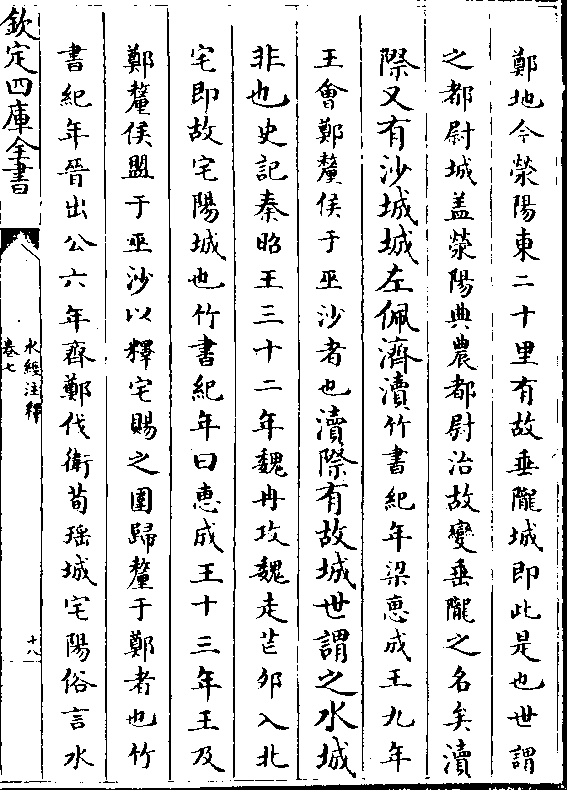 鄭地今滎陽東二十里有故垂隴城即此是也世謂
之都尉城盖滎陽典農都尉治故變垂隴之名矣瀆
際又有沙城城左佩濟瀆竹書紀年梁惠成王九年
王會鄭釐侯于巫沙者也瀆際有故城世謂之水城
非也史記秦昭王三十二年魏冉攻魏走芒卯入北
宅即故宅陽城也竹書紀年曰惠成王十三年王及
鄭釐侯盟于巫沙以釋宅陽之圍歸釐于鄭者也竹
書紀年晉出公六年齊鄭伐衛荀瑶城宅陽俗言水
欽定四庫全書
水經注釋
卷七
十八